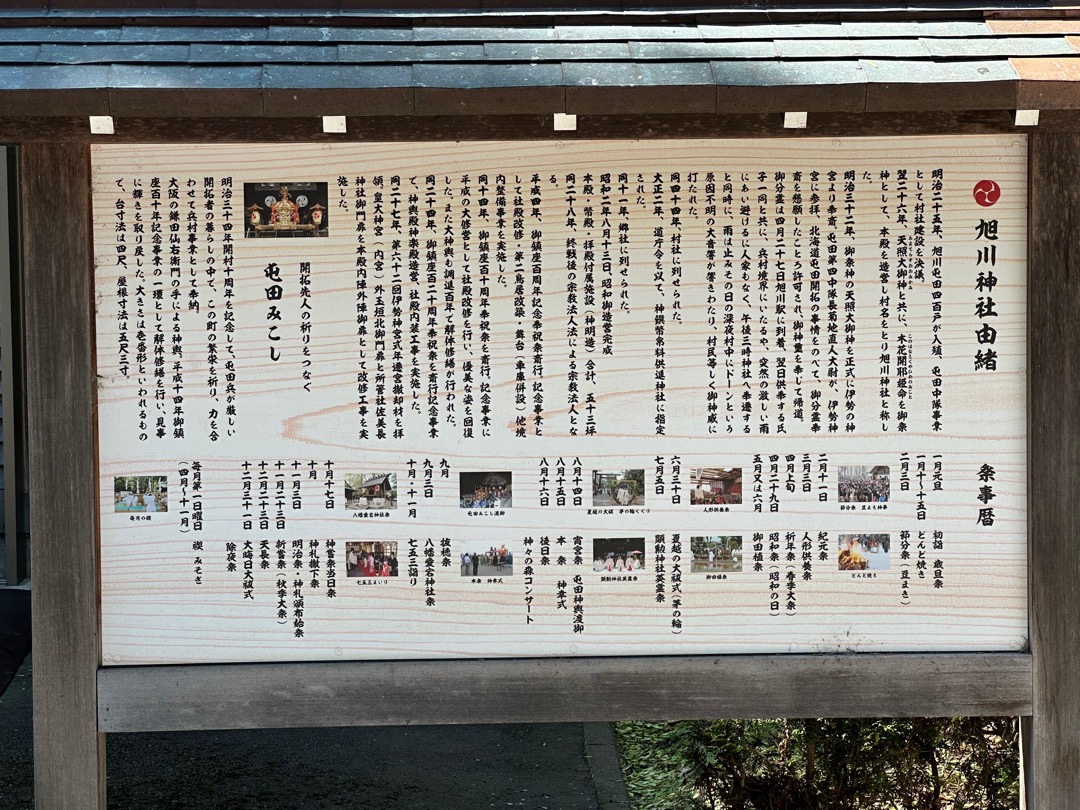 旭川神社由緒
明治二十五年、旭川屯田四百戸が入植、屯田中隊事業
として村社建設を決議、
翌二十六年、天照大御神と共に、木花開邪姫命を御祭
神として、本殿を造営し村名をとり旭川神社と称し
た。
明治三十二年、御祭神の天照大御神を正式に伊勢の神
宮より奉斎、屯田第四中隊長菊地直人大尉が、伊勢神
宮に参拝、北海道屯田開拓の事情をのべて、御分霊奉
斎を懇願したところ許可され、御神璽を奉じて帰道。
御分霊は四月二十七日旭川駅に到着、翌日供奉する氏
子一同と共に、兵村境界にいたるや、突然の激しい雨
にあい避けるに人家もなく、午後三時神社へ奉遷する
と同時に、雨は止みその日の深夜村中にドーンという
原因不明の大音響が響きわたり、村民等しく御神威に
打たれた。
同四十四年、村社に列せられた。
大正二年、道庁令を以て、神饌幣帛料供進神社に指定
同十一年、郷社に列せられた。
昭和二年八月十三日、昭和御造営完成
本殿・幣殿・拝殿付属施設（神明造）合計、五十三坪
同二十八年、終戦後の宗教法人法による宗教法人とな
る。
平成四年、御鎮座百周年記念奉祝祭斎行、記念事業と
して社殿改修・第二鳥居改築・舞台（車庫併設）他境
内整備事業を実施した。
同十四年、御鎮座百十周年奉祝祭を斎行、記念事業に
平成の大修営として社殿改修を行い、優美な姿を回復
した。また大神輿も調進百年で解体修繕が行われた。
同二十四年、御鎮座百二十周年奉祝祭を斎行記念事業
て、神輿殿神楽殿造営、社殿内装工事を実施した。
同二十七年、第六十二回伊勢神宮式年遷宮撤却材を拝
領。皇大神宮（内宮）外玉垣北御門扉と所管社佐美長
神社御門扉を本殿内陣外陣御扉として改修工事を実
施した。
開拓先人の祈りをつなぐ
屯田みこし
明治三十四年開村十周年を記念して、屯田兵が厳しい
開拓者の暮らしの中で、この町の繁栄を祈り、力を合
わせて兵村事業として奉納
大阪の鎌田仙右衛門の手による神輿。平成十四年御鎮
座百十年記念事業の一環として解体修繕を行い、見事
に輝きを取り戻した。大きさは壱番形といわれるもの
で、台寸法は四尺、屋根寸法は五尺三寸。
祭事暦
一月元旦 初詣 歳旦祭
一月十〜十五日 どんど焼き
二月三日 節分祭（豆まき）
節分祭 豆まき神事
どんど焼き
二月十一日 紀元祭
三月三日 人形供養祭
四月上旬 祈年祭（春季大祭）
四月二十九日 昭和祭（昭和の日）
五月又は六月 御田植祭
人形供養祭
御田植祭
六月三十日 夏越の大祓式（茅の輪）
七月五日 顕勲神社英霊祭
夏越の大祓 茅の輪くぐり
顕勲神社英霊祭
八月十四日 宵宮祭 屯田神輿渡御
八月十五日 本祭 神幸式
八月十六日 後日祭
神々の森コンサート
屯田みこし渡御
本祭 神幸式
九月 抜穂祭
九月三日 八幡愛宕神社祭
十月・十一月 七五三詣り
八幡愛宕神社祭
七五三まいり
十月十七日 神嘗祭当日祭
十月 神札撤下祭
十一月三日 明治祭・神札頒布始祭
十一月二十三日 新嘗祭（秋季大祭）
十二月二十三日 天長祭
十二月三十一日 大晦日大祓式
除夜祭
毎月第一日曜日 禊 みそぎ
（四月〜十一月）
毎月の禊